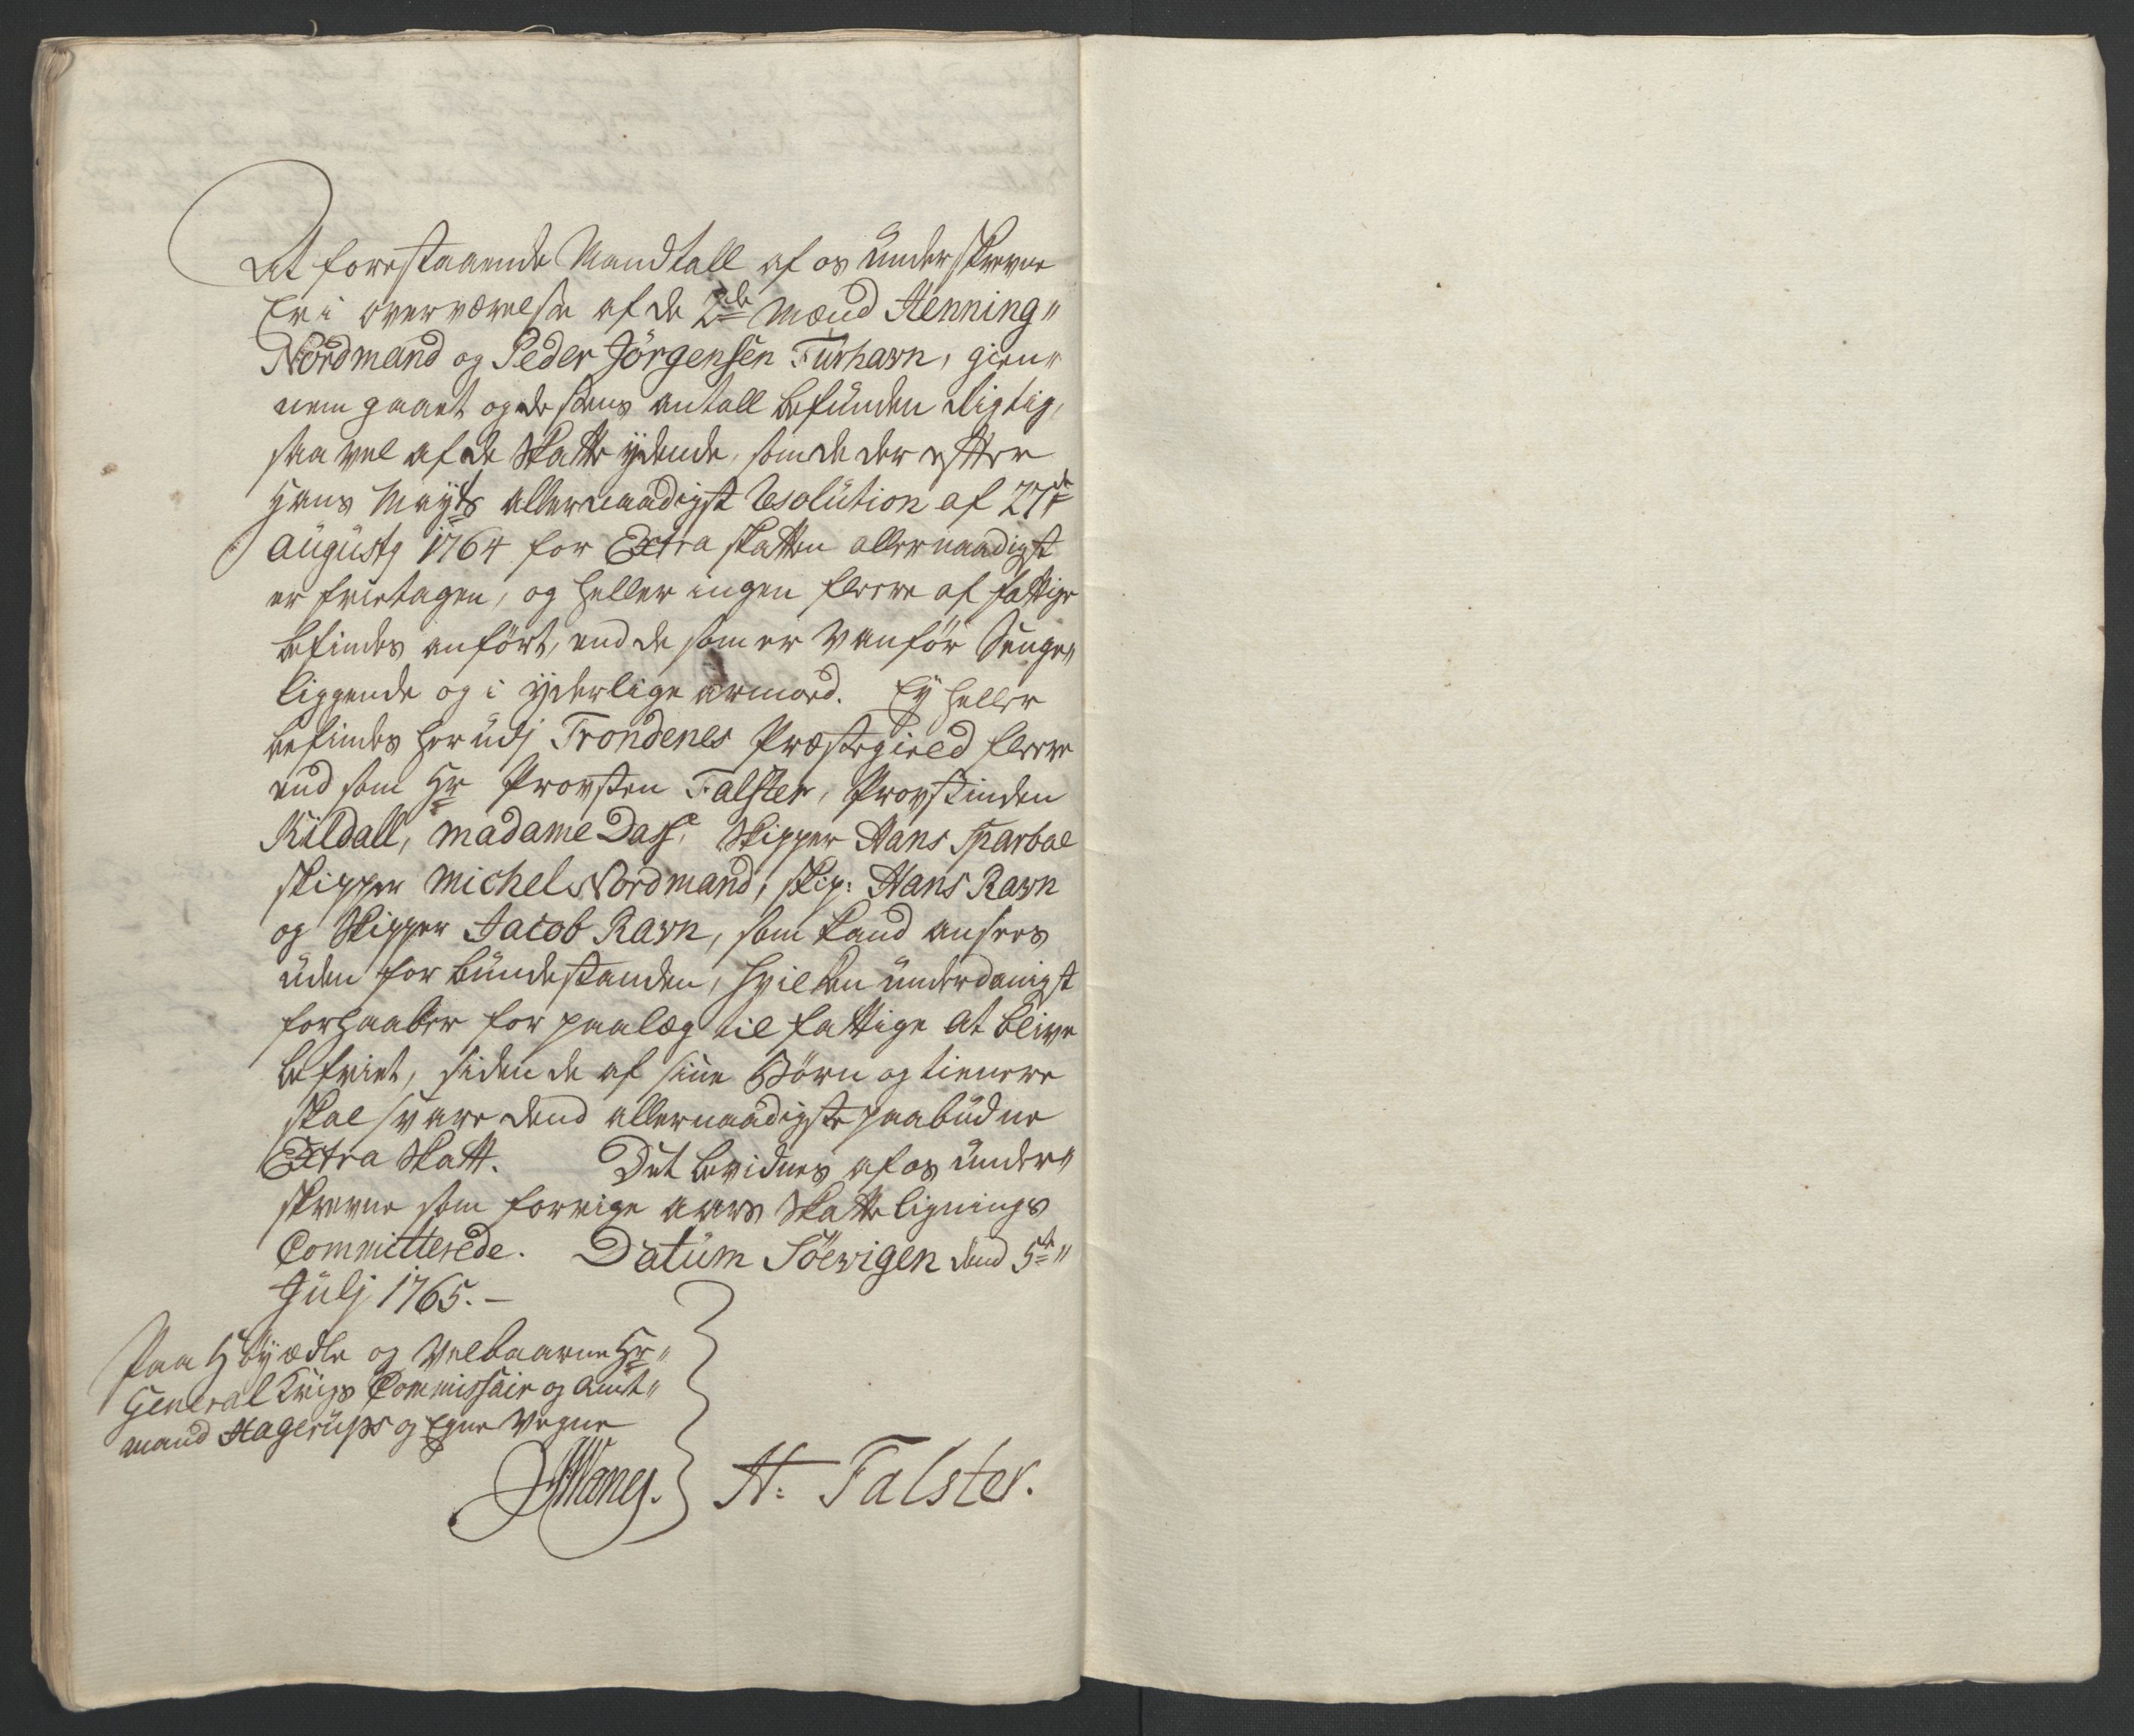 At forestaaende Mandtall af os underskrevne
Er i overværelse af de 2de Mænd Henning
Nordmand og Peder Jörgensen Furhavn, gien-
nem gaaet og desens antall befunden Rigtig,
saa vel af de Skatte ydende, som de der efter
Hans Mayts allernaadigst Resolution af 27de
Augusty 1764 for Extra skatten allernaadigst
er frietagen, og heller ingen fleere af fattige
befindes anført, end de som er Vanför Senge-
liggende og i yderlige armoed. Ey heller
befindes her udj Trondenes Præstegield fleere
end som Hr Provsten Falster, Provstinden
Kildall, Madame Dass, Skipper Hans Sparboe
skipper Michel Nordmand, skip: Hans Ravn
og Skipper Jacob Ravn, som kand ansees
uden for bundestanden, hvilken underdanigst
forhaaber for paalæg til fattige at blive
befriet, siden de af sine Börn og tienere
skal svare dend allernaadigste paabudne
Extra Skatt. Det bevidnes af os under-
skrevne som forrige aars Skatte lignings
Committerede. Datum Söevigen dend 5te
Julj 1765.-
Paa Höyædle og Velbaarne Hr
General Krigs Commissair og Amt-
mand Hagerups og Egne Vegne
JWang. H: Falster.